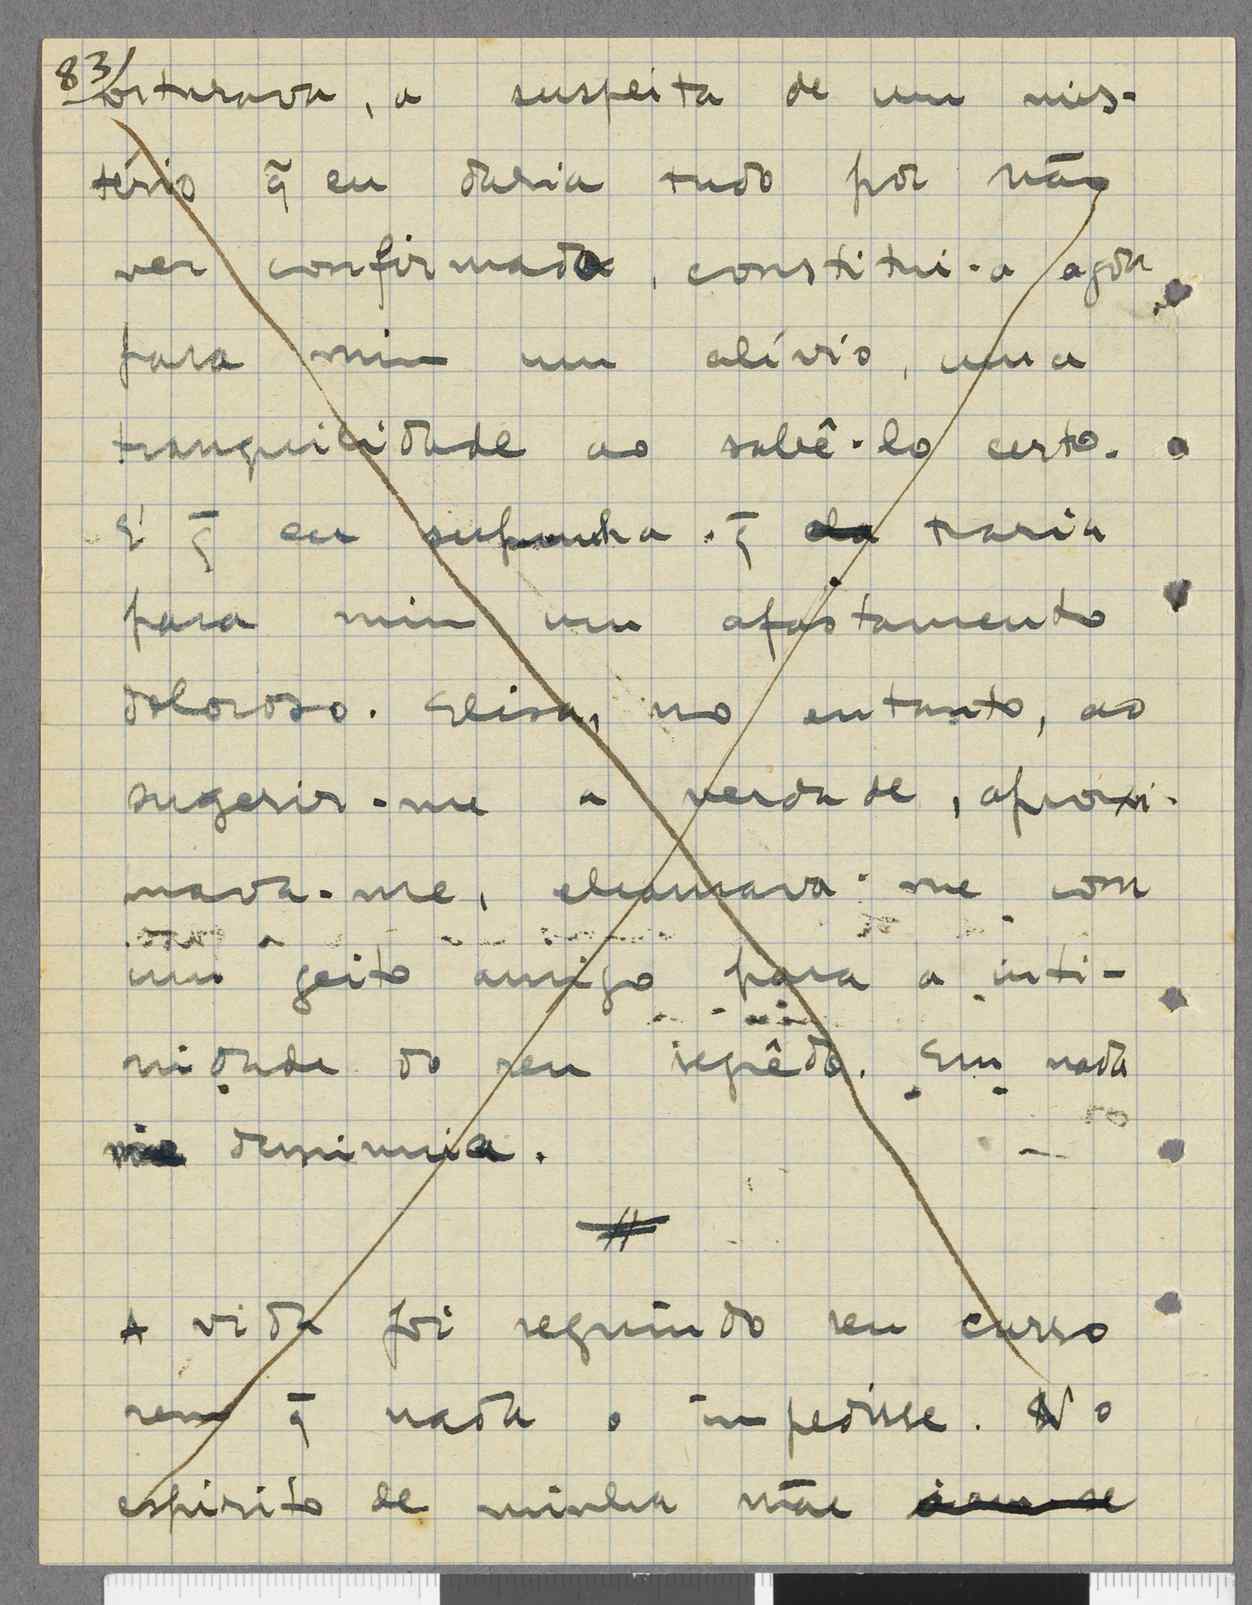 83/
torturava, a suspeita de um mis-
tério q̃ eu daria tudo por não
ver confirmado, constitui-a agora
para mim um alívio, uma
tranquilidade ao sabê-lo certo.
E q̃ eu supunha q̃ ela traria
para mim um afastamento
doloroso. Elisa, no entanto, ao
sugerir-me a verdade, aproxi-
mava-me, chamava-me com
um geito amigo para a inti-
midade do seu segrêdo. Em nada
me diminuia.
#
A vida foi seguindo seu curso
sem q̃ nada o impedisse. No
espirito de minha mãe